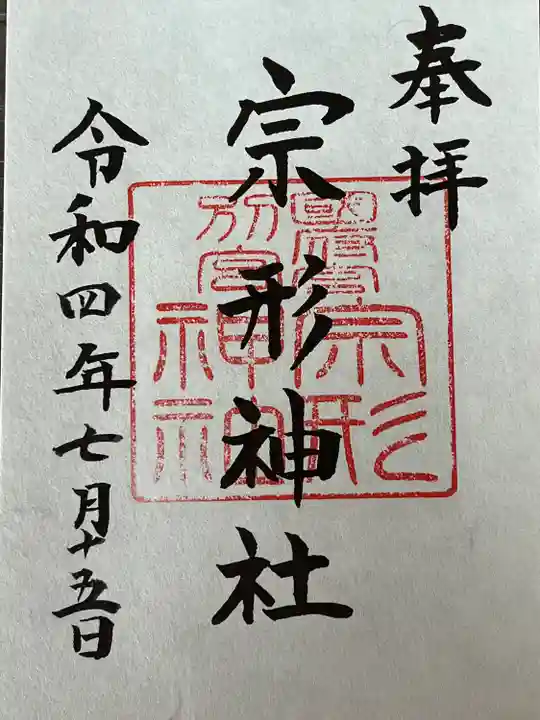 奉拝
宗形神社
令和四年七月十五日
別宮
宗形
神社